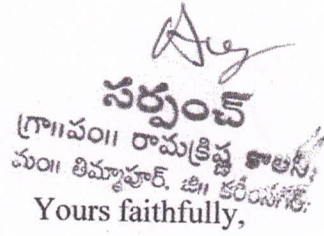 సర్పంచ్
గ్రా॥పం॥ రామక్రిష్ణ కాలని,
మం॥ తిమ్మాపూర్, జి॥ కరీంనగర్.
Yours faithfully,